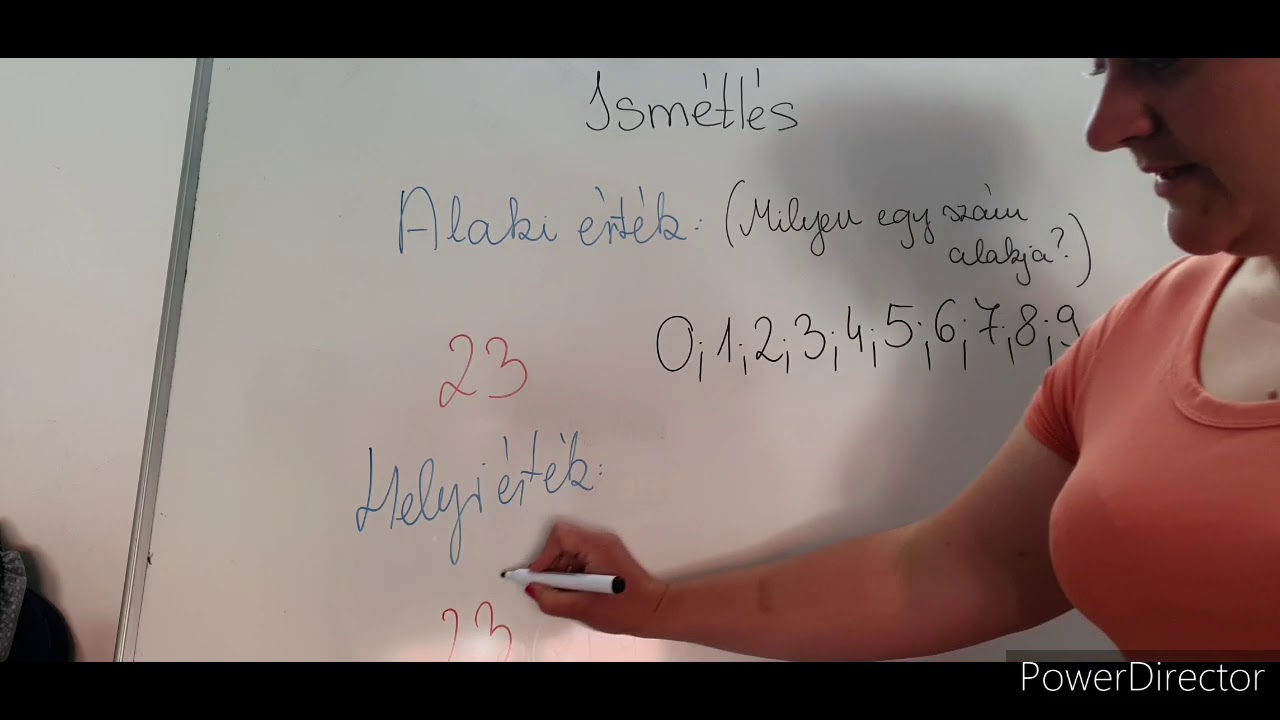 Ismétlés
Alaki érték: (Milyen egy szám
alakja?)
0; 1; 2; 3; 4; 5; 6; 7; 8; 9
23
Helyi érték:
23
PowerDirector